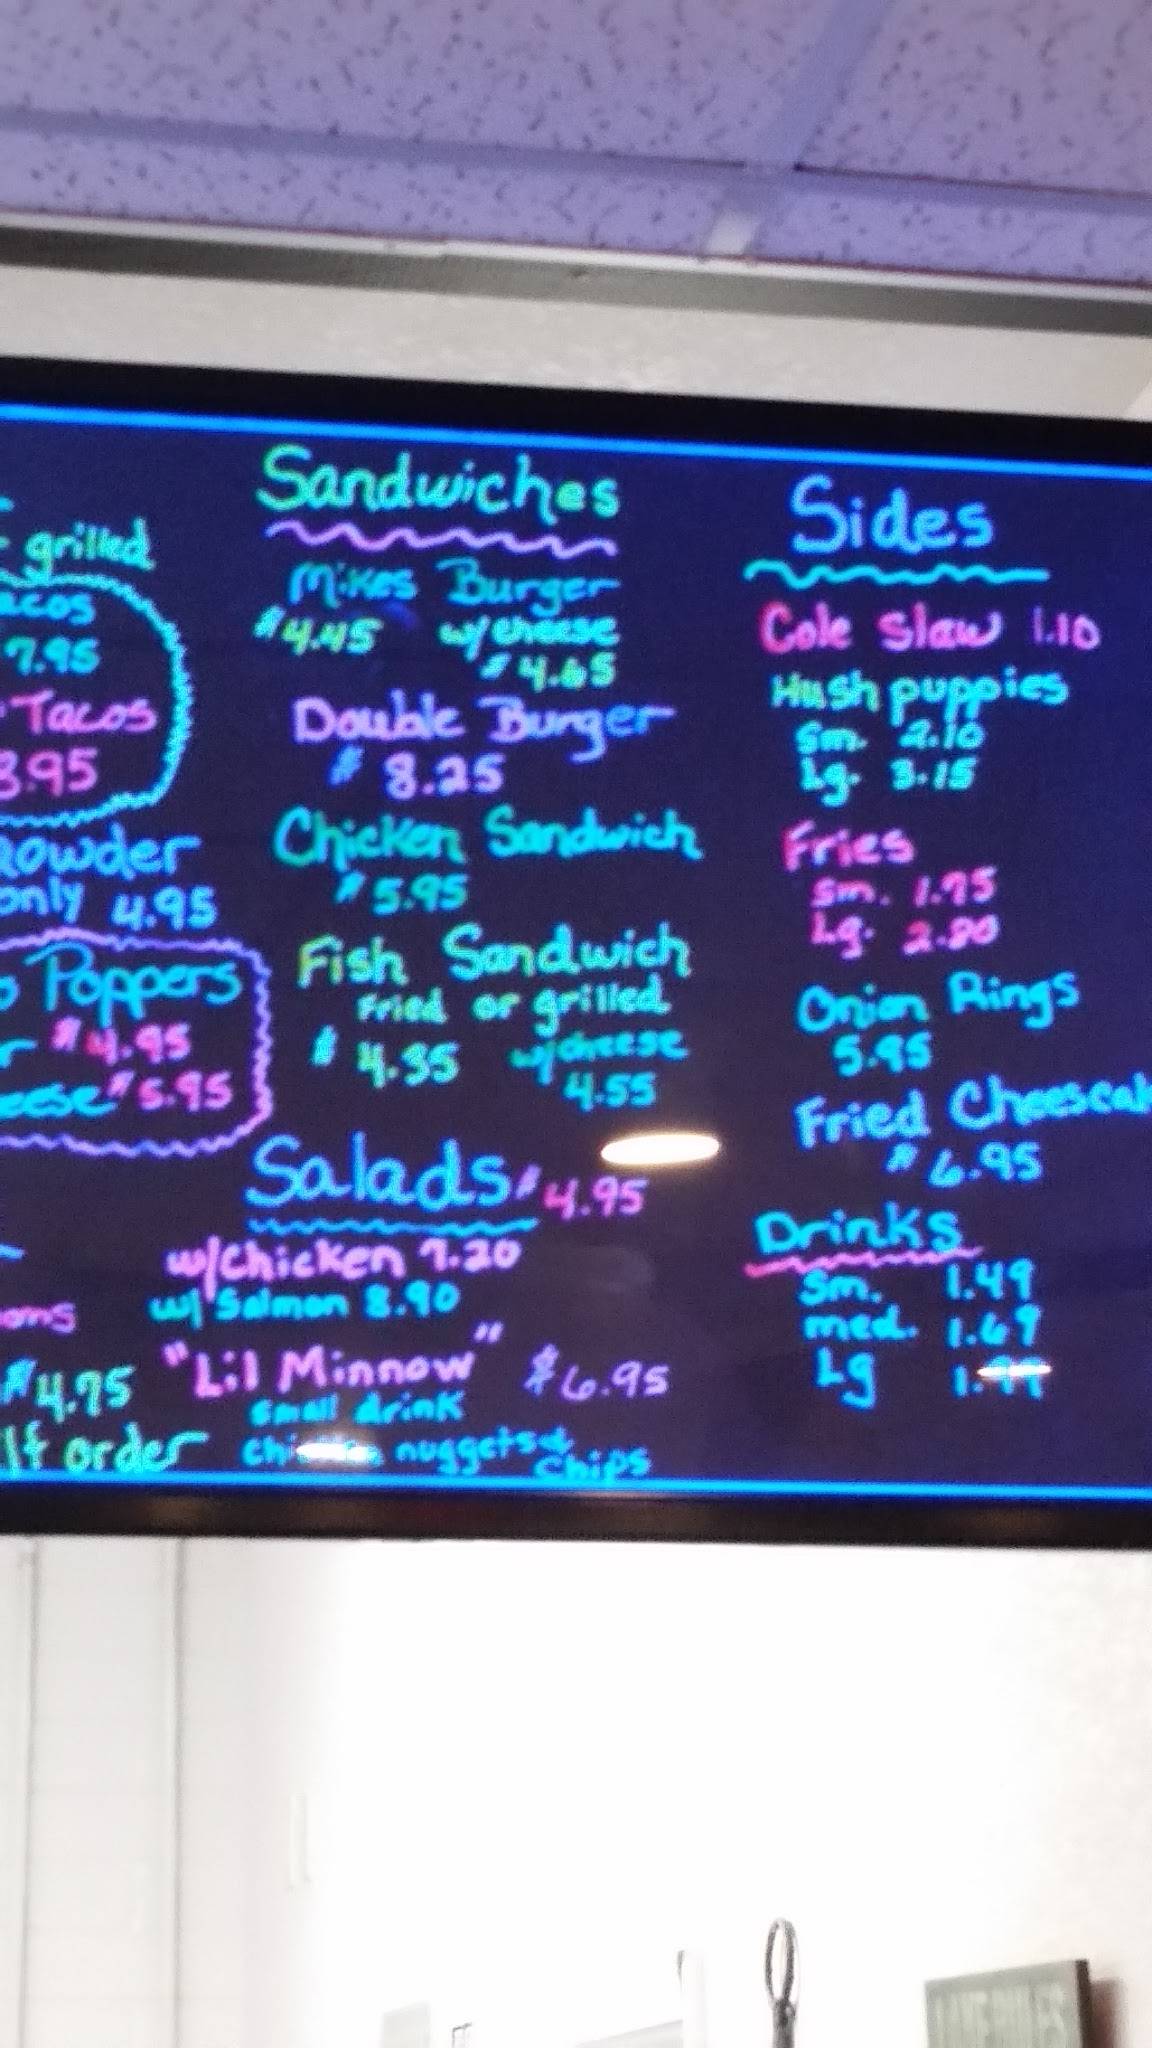 grilled
7.95
Tacos
8.95
only 4.95
Poppers
$4.95
$5.95
$4.75
order
Sandwiches
Mikes Burger
$4.45 w/cheese
$4.65
Double Burger
$8.25
Chicken Sandwich
$5.95
Fish Sandwich
Fried or grilled
$4.35 w/cheese
4.55
Salads $4.95
w/Chicken 7.20
w/ Salmon 8.90
"Lil Minnow" $6.95
small drink
nuggets &
chips
Sides
Cole Slaw 1.10
Hush puppies
Sm. 2.10
Lg. 3.15
Fries
Sm.
Lg.
Onion Rings
5.95
Fried
$6.95
Drinks
Sm. 1.49
med. 1.69
Lg